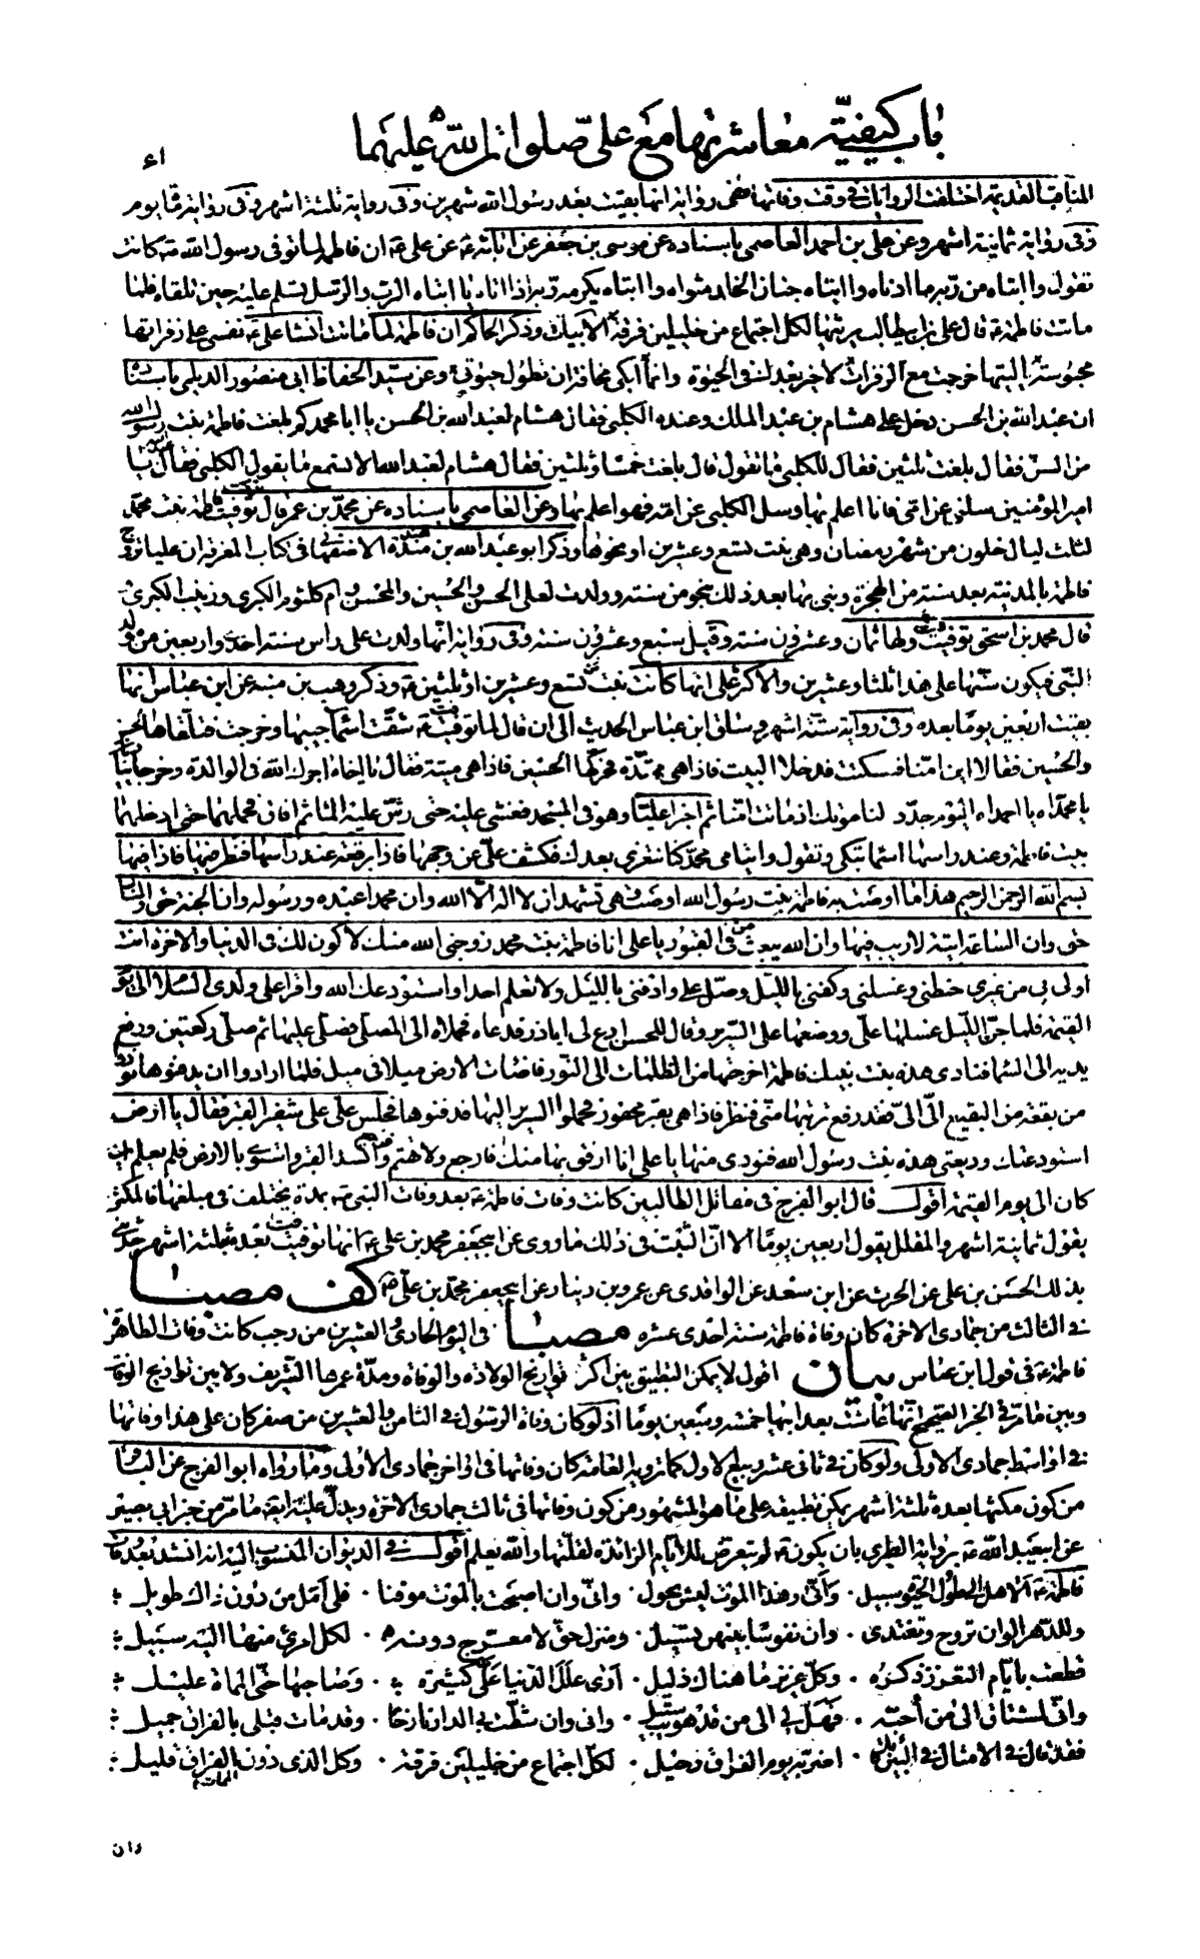 باب كيفيّة معاشرتها مع علىّ صلوات اللّه عليهما
المناقب القديمة اختلفت الروايات فى وقت وفاتها ففى رواية انها بقيت بعد رسول الله شهرين وفى رواية ثلثة اشهر وفى رواية مأة يوم
وفى رواية ثمانية اشهر وعن على بن احمد العاصمى باسناده عن موسى بن جعفر عن ابائه ع عن على ع ان فاطمة لما توفى رسول الله ص كانت
تقول وا ابتاه من ربه ما ادناه وا ابتاه جنان الخلد مثواه وا ابتاه يكرمه ربه اذا اتاه يا ابتاه الرب والرسل تسلم عليه حين تلقاه فلما
ماتت فاطمة ع قال على بن ابيطالب يرثيها لكل اجتماع من خليلين فرقة الابيات وذكر الحاكم ان فاطمة لما ماتت انشأ على ع نفسى على زفراتها
محبوسة يا ليتها خرجت مع الزفرات لا خير بعدك فى الحيوة وانما ابكى مخافة ان تطول حيوتى وعن سيد الحفاظ ابى منصور الديلمى باسناده
ان عبد الله بن الحسن دخل على هشام بن عبد الملك وعنده الكلبى فقال هشام لعبد الله بن الحسن يا ابا محمد كم بلغت فاطمة بنت رسول الله
من السن فقال بلغت ثلثين فقال للكلبى ما تقول قال بلغت خمسا وثلثين فقال هشام لعبد الله الا تسمع ما يقول الكلبى فقال عبد الله يا
امير المؤمنين سلنى عن امى فانا اعلم بها وسل الكلبى عن امه فهو اعلم بها وعن العاصمى باسناده عن محمد بن عمر قال توفيت فاطمة بنت محمد
لثلث ليال خلون من شهر رمضان وهى بنت تسع وعشرين او نحوها وذكر ابو عبد الله بن مندة الاصفهانى فى كتاب المعرفة ان عليا تزوج
فاطمة بالمدينة بعد سنة من الهجرة وبنى بها بعد ذلك بنحو من سنة وولدت لعلى الحسن والحسين والمحسن وام كلثوم الكبرى وزينب الكبرى
قال محمد بن اسحق توفيت ولها ثمان وعشرون سنة وقيل سبع وعشرون سنة وفى رواية انها ولدت على رأس سنة احدى واربعين من مولد
النبى فيكون سنها على هذا ثلثا وعشرين والاكثر على انها كانت بنت تسع وعشرين او ثلثين وذكر وهب بن منبه عن ابن عباس انها
بقيت اربعين يوما بعده وفى رواية ستة اشهر وساق ابن عباس الحديث الى ان قال لما توفيت ع شقت اسماء جيبها وخرجت فتلقاها الحسن
والحسين فقالا اين امنا فسكتت فدخلا البيت فاذا هى ممتدة فحركها الحسين فاذا هى ميتة فقال يا اخاه اجرك الله فى الوالدة وخرجا يناديان
يا محمداه يا احمداه اليوم جدد لنا موتك اذ ماتت امنا ثم اخبرا عليا وهو فى المسجد فغشى عليه حتى رش عليه الماء ثم افاق فحملهما حتى ادخلهما
بيت فاطمة وعند رأسها اسماء تبكى وتقول وا يتامى محمد كنا نتعزى بعدك فكشف على عن وجهها فاذا برقعة عند رأسها فنظر فيها فاذا فيها
بسم الله الرحمن الرحيم هذا ما اوصت به فاطمة بنت رسول الله اوصت وهى تشهد ان لا اله الا الله وان محمدا عبده ورسوله وان الجنة حق والنار
حق وان الساعة اتية لا ريب فيها وان الله يبعث من فى القبور يا على انا فاطمة بنت محمد زوجنى الله منك لاكون لك فى الدنيا والاخرة انت
اولى بى من غيرى حنطنى وغسلنى وكفنى بالليل وصل على وادفنى بالليل ولا تعلم احدا واستودعك الله واقرء على ولدى السلام الى يوم
القيمة فلما جن الليل غسلها على ووضعها على السرير وقال للحسن ادع لى اباذر فدعاه فحملاه الى المصلى فصلى عليها ثم صلى ركعتين ورفع
يديه الى السماء فنادى هذه بنت نبيك فاطمة اخرجتها من الظلمات الى النور فاضاءت الارض ميلا فى ميل فلما ارادوا ان يدفنوها نودوا
من بقعة من البقيع الىّ الىّ فقد رفع تربتها منى فنظروا فاذا هى بقبر محفور فحملوا السرير اليها فدفنوها فجلس على على شفير القبر فقال يا ارض
استودعتك وديعتى هذه بنت رسول الله فنودى منها يا على انا ارفق بها منك فارجع ولا تهتم فرجع وانسد القبر واستوى بالارض فلم يعلم اين
كان الى يوم القيمة اقول قال ابو الفرج فى مقاتل الطالبيين كانت وفات فاطمة ع بعد وفات النبى ص بمدة يختلف فى مبلغها فالمكثر
يقول ثمانية اشهر والمقلل يقول اربعين يوما الا ان الثبت فى ذلك ما روى عن ابيجعفر محمد بن على ع انها توفيت بعده بثلثة اشهر حدثنى
بذلك الحسن بن على عن الحرث عن ابن سعد عن الواقدى عن عمرو بن دينار عن ابيجعفر محمد بن على ع كف مصبا
فى الثالث من جمادى الاخرة كان وفاة فاطمة سنة احدى عشره مصبا فى اليوم الحادى والعشرين من رجب كانت وفات الطاهرة
فاطمة ع فى قول ابن عباس بيان اقول لا يمكن التطبيق بين اكثر تواريخ الولادة والوفاة ومدة عمرها الشريف ولا بين تواريخ الوفات
وبين ما مر فى الخبر الصحيح انها عاشت بعد ابيها خمسة وسبعين يوما اذ لو كان وفاة الرسول فى الثامن والعشرين من صفر كان على هذا وفاتها
فى اواسط جمادى الاولى ولو كان فى ثانى عشر ربيع الاول كما ترويه العامة كان وفاتها فى اواخر جمادى الاولى وما رواه ابو الفرج عن الباقر
من كون مكثها بعده ثلثة اشهر يمكن تطبيقه على ما هو المشهور من كون وفاتها فى ثالث جمادى الاخرة ويدل عليه ايضا ما مر من خبر ابى بصير
عن ابيعبد الله ع برواية الطبرى بان يكون ع لم يتعرض للايام الزائدة لقلتها والله يعلم اقول فى الديوان المنسوب اليه انه انشد بعد وفات
فاطمة ع الا هل الى طول الحيوة سبيل ٠ وأنّى وهذا الموت ليس يحول ٠ وانى وان اصبحت بالموت موقنا ٠ فلى امل من دون ذاك طويل
وللدهر الوان تروح وتغتدى ٠ وان نفوسا بينهن تسيل ٠ ومنزل حق لا معرّج دونه ٠ لكل امرئ منها اليه سبيل
قطعت بايام التعزز ذكره ٠ وكل عزيز ما هناك ذليل ٠ ارى علل الدنيا علىّ كثيرة ٠ وصاحبها حتى الممات عليل
وانى لمشتاق الى من أحبه ٠ فهل لى الى من قد هويت سبيل ٠ وانى وان شطت بى الدار نازحا ٠ وقد مات قبلى بالفراق جميل
فقد قال فى الامثال فى البين قائل ٠ اضر به يوم الفراق رحيل ٠ لكل اجتماع من خليلين فرقة ٠ وكل الذى دون الفراق قليل
وان